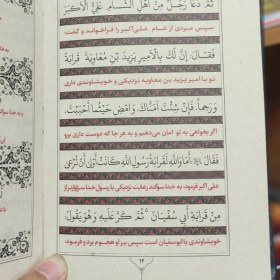 ثُمَّ دَعَا رَجُلٌ مِنْ أَهْلِ الشَّامِ عَلِيَّ الْأَكْبَرِ
سپس مردی از شام علی‌اکبر را فراخواند و گفت:
فَقَالَ: إِنَّ لَكَ بِالْأَمِيرِ يَزِيدِ بْنِ مُعَاوِيَةَ قَرَابَةً
تو با امیر یزید بن معاویه نزدیکی و خویشاوندی داری
وَرَحِماً، فَإِنْ شِئْتَ آمَنَّاكَ وَامْضِ حَيْثُمَا أَحْبَبْتَ،
اگر بخواهی به تو امان می‌دهیم و به هر جا که دوست داری برو
فَقَالَ: أَمَا وَاللهِ لَقَرَابَةُ رَسُولِ اللهِ كَانَتْ أَوْلَى أَنْ تُرْعَى
علی‌اکبر فرمود: به خدا سوگند رعایت نزدیکی با رسول خدا سزاوارتر از
مِنْ قَرَابَةِ أَبِي سُفْيَانَ ثُمَّ كَرَّ عَلَيْهِ وَهُوَ يَقُولُ:
خویشاوندی با ابوسفیان است سپس بر او هجوم برد و فرمود: